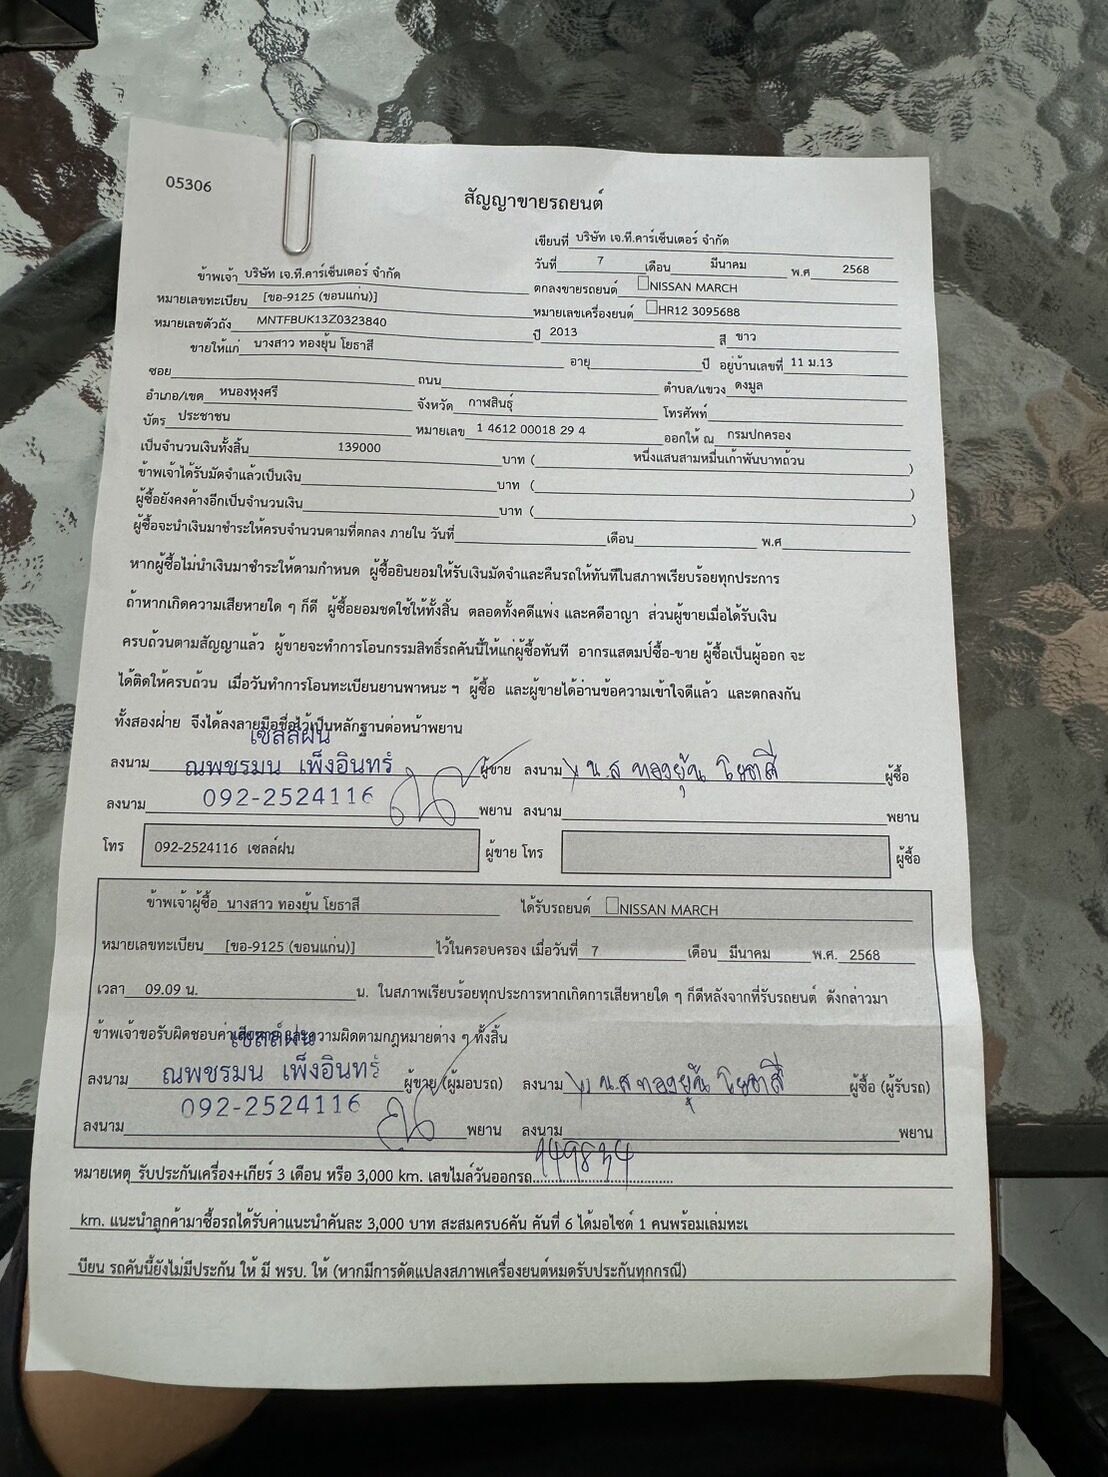 05306
สัญญาขายรถยนต์
เขียนที่ บริษัท เจ.ที.คาร์เซ็นเตอร์ จำกัด
วันที่ 7 เดือน มีนาคม พ.ศ 2568
ข้าพเจ้า บริษัท เจ.ที.คาร์เซ็นเตอร์ จำกัด ตกลงขายรถยนต์ NISSAN MARCH
หมายเลขทะเบียน [ขอ-9125 (ขอนแก่น)] หมายเลขเครื่องยนต์ HR12 3095688
หมายเลขตัวถัง MNTFBUK13Z0323840 ปี 2013 สี ขาว
ขายให้แก่ นางสาว ทองยุ้น โยธาสี อายุ ปี อยู่บ้านเลขที่ 11 ม.13
ซอย ถนน ตำบล/แขวง ดงมูล
อำเภอ/เขต หนองหุงศรี จังหวัด กาฬสินธุ์ โทรศัพท์
บัตร ประชาชน หมายเลข 1 4612 00018 29 4 ออกให้ ณ กรมปกครอง
เป็นจำนวนเงินทั้งสิ้น 139000 บาท ( หนึ่งแสนสามหมื่นเก้าพันบาทถ้วน )
ข้าพเจ้าได้รับมัดจำแล้วเป็นเงิน บาท ( )
ผู้ซื้อยังคงค้างอีกเป็นจำนวนเงิน บาท ( )
ผู้ซื้อจะนำเงินมาชำระให้ครบจำนวนตามที่ตกลง ภายใน วันที่ เดือน พ.ศ
หากผู้ซื้อไม่นำเงินมาชำระให้ตามกำหนด ผู้ซื้อยินยอมให้รับเงินมัดจำและคืนรถให้ทันทีในสภาพเรียบร้อยทุกประการ
ถ้าหากเกิดความเสียหายใด ๆ ก็ดี ผู้ซื้อยอมชดใช้ให้ทั้งสิ้น ตลอดทั้งคดีแพ่ง และคดีอาญา ส่วนผู้ขายเมื่อได้รับเงิน
ครบถ้วนตามสัญญาแล้ว ผู้ขายจะทำการโอนกรรมสิทธิ์รถคันนี้ให้แก่ผู้ซื้อทันที อากรแสตมป์ซื้อ-ขาย ผู้ซื้อเป็นผู้ออก จะ
ได้ติดให้ครบถ้วน เมื่อวันทำการโอนทะเบียนยานพาหนะ ฯ ผู้ซื้อ และผู้ขายได้อ่านข้อความเข้าใจดีแล้ว และตกลงกัน
ทั้งสองฝ่าย จึงได้ลงลายมือชื่อไว้เป็นหลักฐานต่อหน้าพยาน
เซลล์ฝน
ลงนาม ณพชรมน เพ็งอินทร์ ผู้ขาย ลงนาม น.ส ทองยุ้น โยธาสี ผู้ซื้อ
ลงนาม 092-2524116 พยาน ลงนาม พยาน
โทร 092-2524116 เซลล์ฝน ผู้ขาย โทร ผู้ซื้อ
ข้าพเจ้าผู้ซื้อ นางสาว ทองยุ้น โยธาสี ได้รับรถยนต์ NISSAN MARCH
หมายเลขทะเบียน [ขอ-9125 (ขอนแก่น)] ไว้ในครอบครอง เมื่อวันที่ 7 เดือน มีนาคม พ.ศ. 2568
เวลา 09.09 น. น. ในสภาพเรียบร้อยทุกประการหากเกิดการเสียหายใด ๆ ก็ดีหลังจากที่รับรถยนต์ ดังกล่าวมา
ข้าพเจ้าขอรับผิดชอบค่าเสียหาย และความผิดตามกฎหมายต่าง ๆ ทั้งสิ้น
เซลล์ฝน
ลงนาม ณพชรมน เพ็งอินทร์ ผู้ขาย (ผู้มอบรถ) ลงนาม น.ส ทองยุ้น โยธาสี ผู้ซื้อ (ผู้รับรถ)
092-2524116
ลงนาม พยาน ลงนาม พยาน
หมายเหตุ รับประกันเครื่อง+เกียร์ 3 เดือน หรือ 3,000 km. เลขไมล์วันออกรถ
km. แนะนำลูกค้ามาซื้อรถได้รับค่าแนะนำคันละ 3,000 บาท สะสมครบ6คัน คันที่ 6 ได้มอไซด์ 1 คนพร้อมเล่มทะเ
บียน รถคันนี้ยังไม่มีประกัน ให้ มี พรบ. ให้ (หากมีการดัดแปลงสภาพเครื่องยนต์หมดรับประกันทุกกรณี)